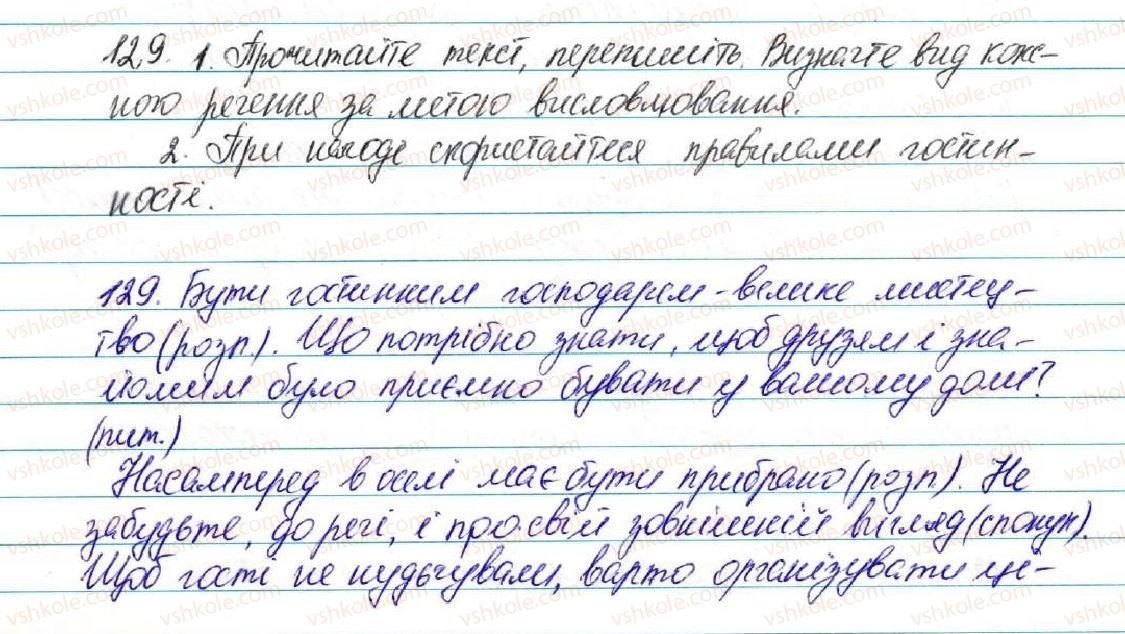 129. 1. Прочитайте текст, перепишіть. Визначте вид кож-
ного речення за метою висловлювання.
2. При нагоде скористайтеся правилами гостин-
ності.
129. Бути гостинним господарем - велике мистец-
тво (розп.). Що потрібно знати, щоб друзям і зна-
йомим було приємно бувати у вашому домі?
(пит.)
Насамперед в оселі має бути прибрано (розп). Не
забудьте, до речі, і про свій зовнішній вигляд (спонук).
Щоб гості не нудьгували, варто організувати ці-